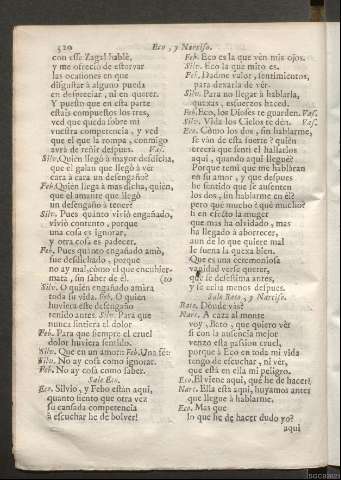 520
Eco, y Narciso.
con esse Zagal hablè,
y me ofrecio de estorvar
las ocasiones en que
disgustar à alguno pueda
en despreciar, ni en querer.
Y puesto que en esta parte
estais compuestos los tres,
ved que queda sobre mi
vuestra competencia, y ved
que el que la rompa, conmigo
avrà de reñir despues. Vase.
Silv. Quièn llegò à mayor desdicha,
que el galan que llegò à vèr
cara à cara un desengaño?
Feb. Quièn llega à mas dicha, quièn,
que el amante que llegò
un desengaño à tener?
Silv. Pues quànto viviò engañado,
viviò contento, porque
una cosa es ignorar,
y otra cosa es padecer.
Feb. Pues quanto engañado amò,
fue desdichado, porque
no ay mal, còmo el que encubier-
mata, sin saber de èl. (to
Silv. O quièn engañado amàra
toda su vida. Feb. O quièn
huviera este desengaño
tenido antes. Silv. Para que
nunca sintiera el dolor
Feb. Para que siempre el cruel
dolor huviera sentido.
Silv. Que en un amor: Feb. Una fè:
Silv. No ay cosa como ignorar.
Feb. No ay cosa como saber.
Sale Eco.
Eco. Silvio, y Febo estàn aqui,
quanto siento que otra vez
su cansada competencia
à escuchar he de bolver!
Feb. Eco la que vèn mis ojos.
Silv. Eco la que miro es.
Feb. Dadme valor, sentimientos,
para dexarla de vèr.
Silv. Para no llegar à hablarla,
quexas, esfuerzos haced.
Feb. Eco, los Dioses te guarden. Vas.
Silv. Vida los Cielos te dèn. Vas.
Eco. Còmo los dos, sin hablarme,
se vàn de esta suerte? quièn
creerà que sentì el hallarlos
aqui, quando aqui lleguè?
Porque temì que me hablàran
en su amor, y que despues
he sentido que se ausenten
los dos, sin hablarme en èl?
pero què mucho? què mucho?
si en efecto la muger
que mas ha olvidado, mas
ha llegado à aborrecer,
aun de lo que quiere mal
le suena la quexa bien.
Que es una ceremoniosa
vanidad verse querer,
que se desestima antes,
y se echa menos despues.
Sale Bato, y Narciso.
Bato. Dònde vàs?
Narc. A caza al monte
voy, Bato, que quiero vèr
si con la ausencia mejor
venzo esta passion cruel,
porque à Eco en toda mi vida
tengo de escuchar, ni vèr,
que està en ella mi peligro.
Eco. El viene aqui, què he de hacer?
Narc. Ella està aqui, huyamos antes
que llegue à hablarme.
Eco. Mas que
lo que he de hacer dudo yo?
aqui